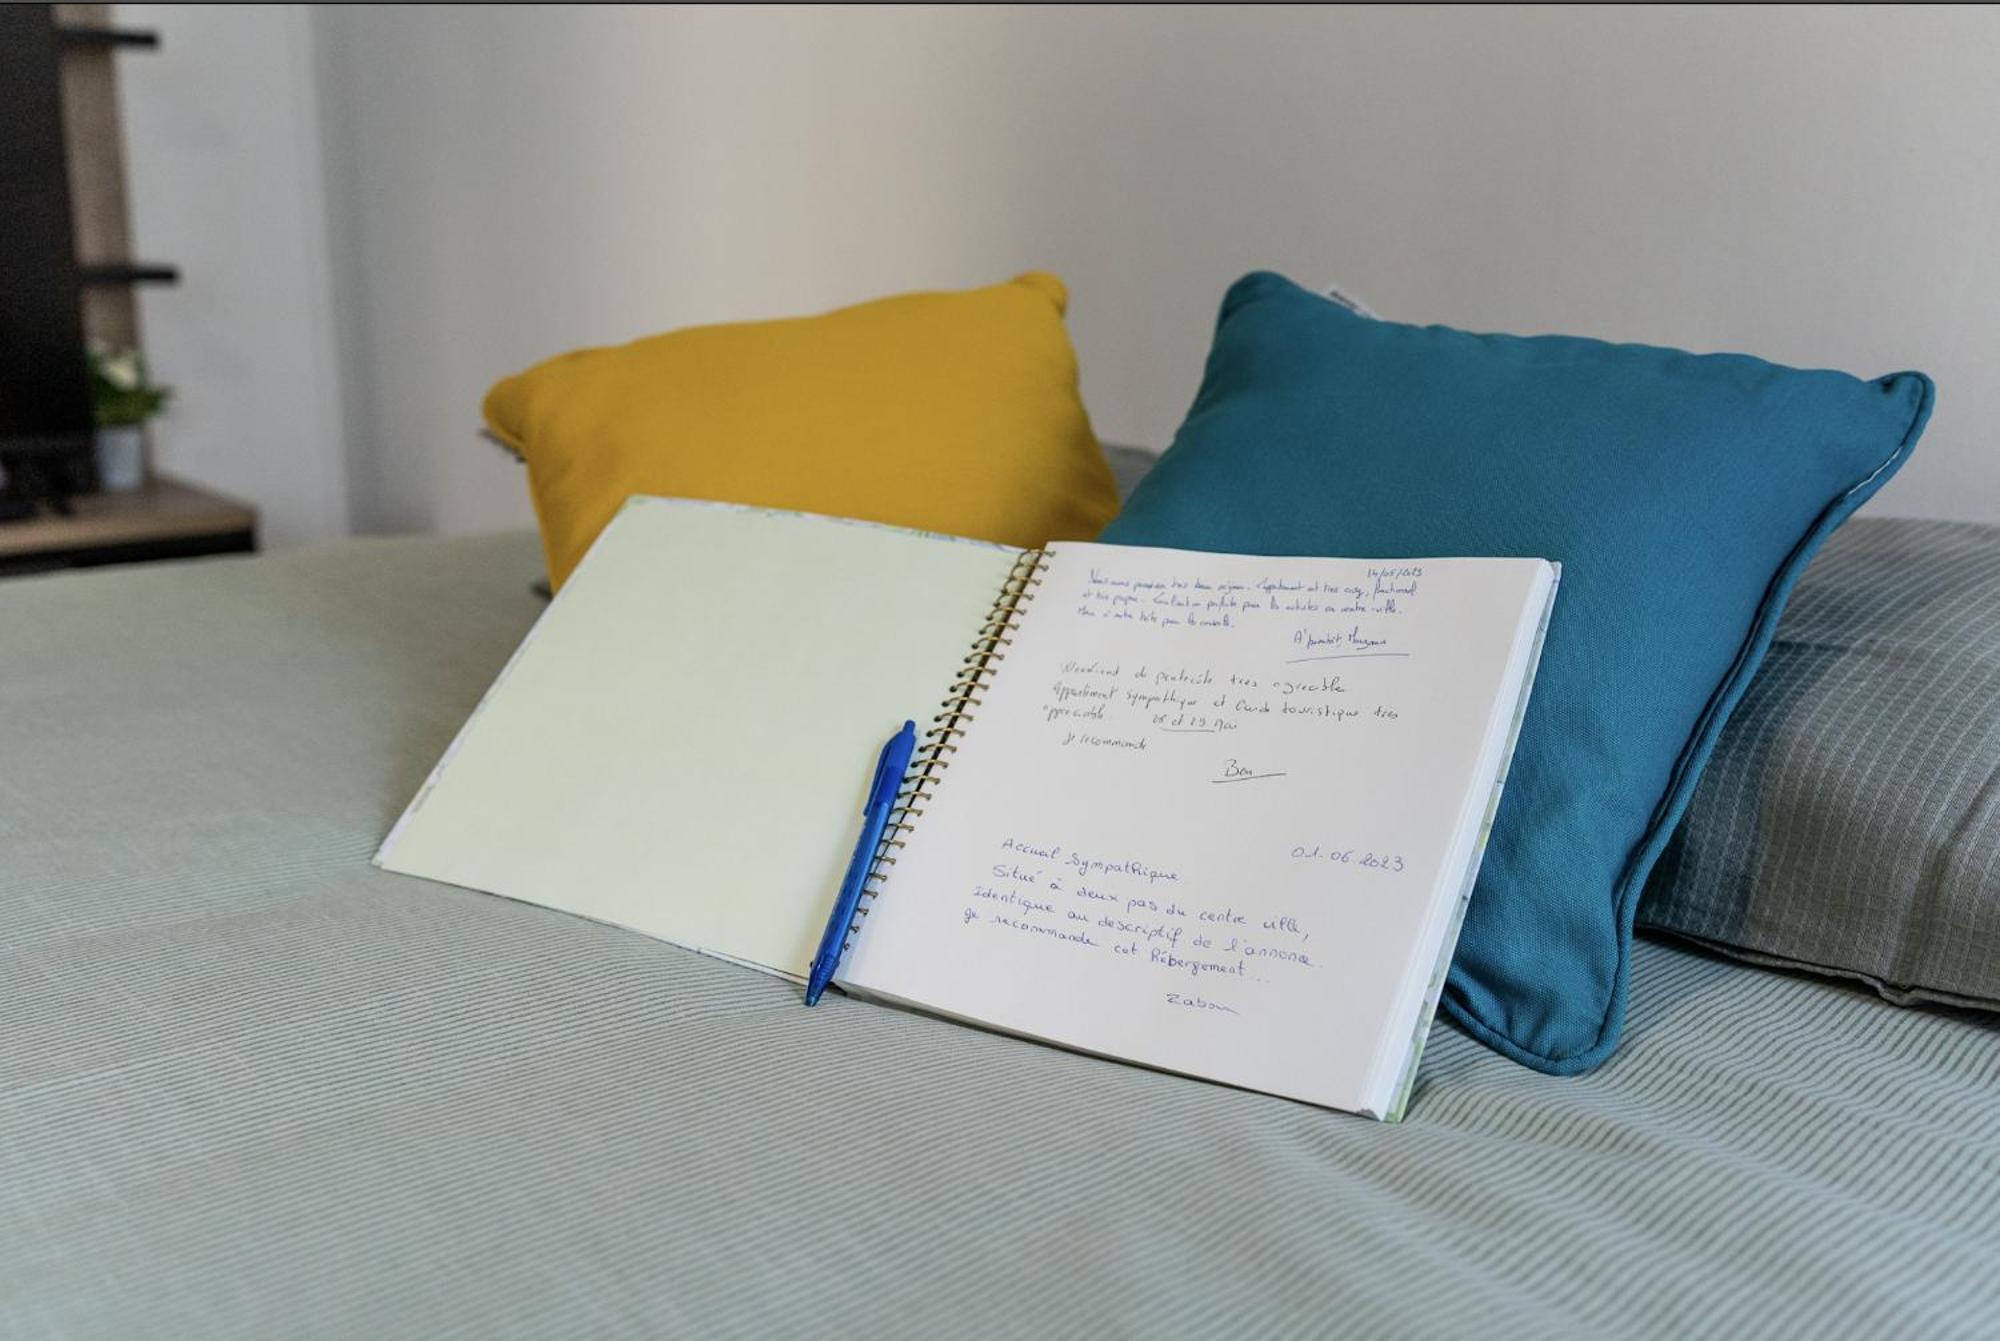 14/05/2023
Nous avons passé un très beau séjour. L'appartement est très cosy, fonctionnel
et très propre. Localisation parfaite pour les activités en centre-ville.
Merci à notre hôte pour les conseils.
A bientôt,
Week-end de pentecôte très agréable
Appartement sympathique et Guide touristique très
appréciable
et 29 Mai
Je recommande
Ben
01.06.2023
Accueil Sympathique
Situé à deux pas du centre ville,
Identique au descriptif de l'annonce.
Je recommande cet hébergement...